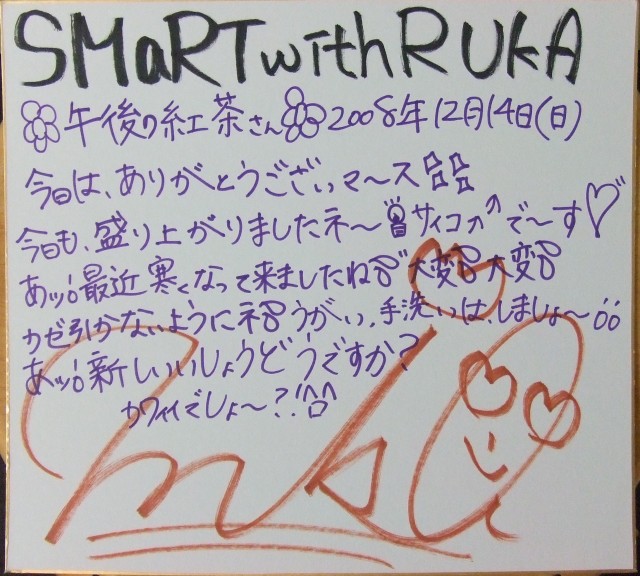 SMaRT with RUKA
午後の紅茶さん 2008年12月14日(日)
今日は、ありがとうございマ〜ス
今日も、盛り上がりましたネ〜 サイコーで〜す♡
あッ!最近寒くなって来ましたね 大変 大変
カゼ引かないようにネ うがい、手洗いは、しましょ〜
あッ!新しいいしょうどうですか?
カワイイでしょ〜?!